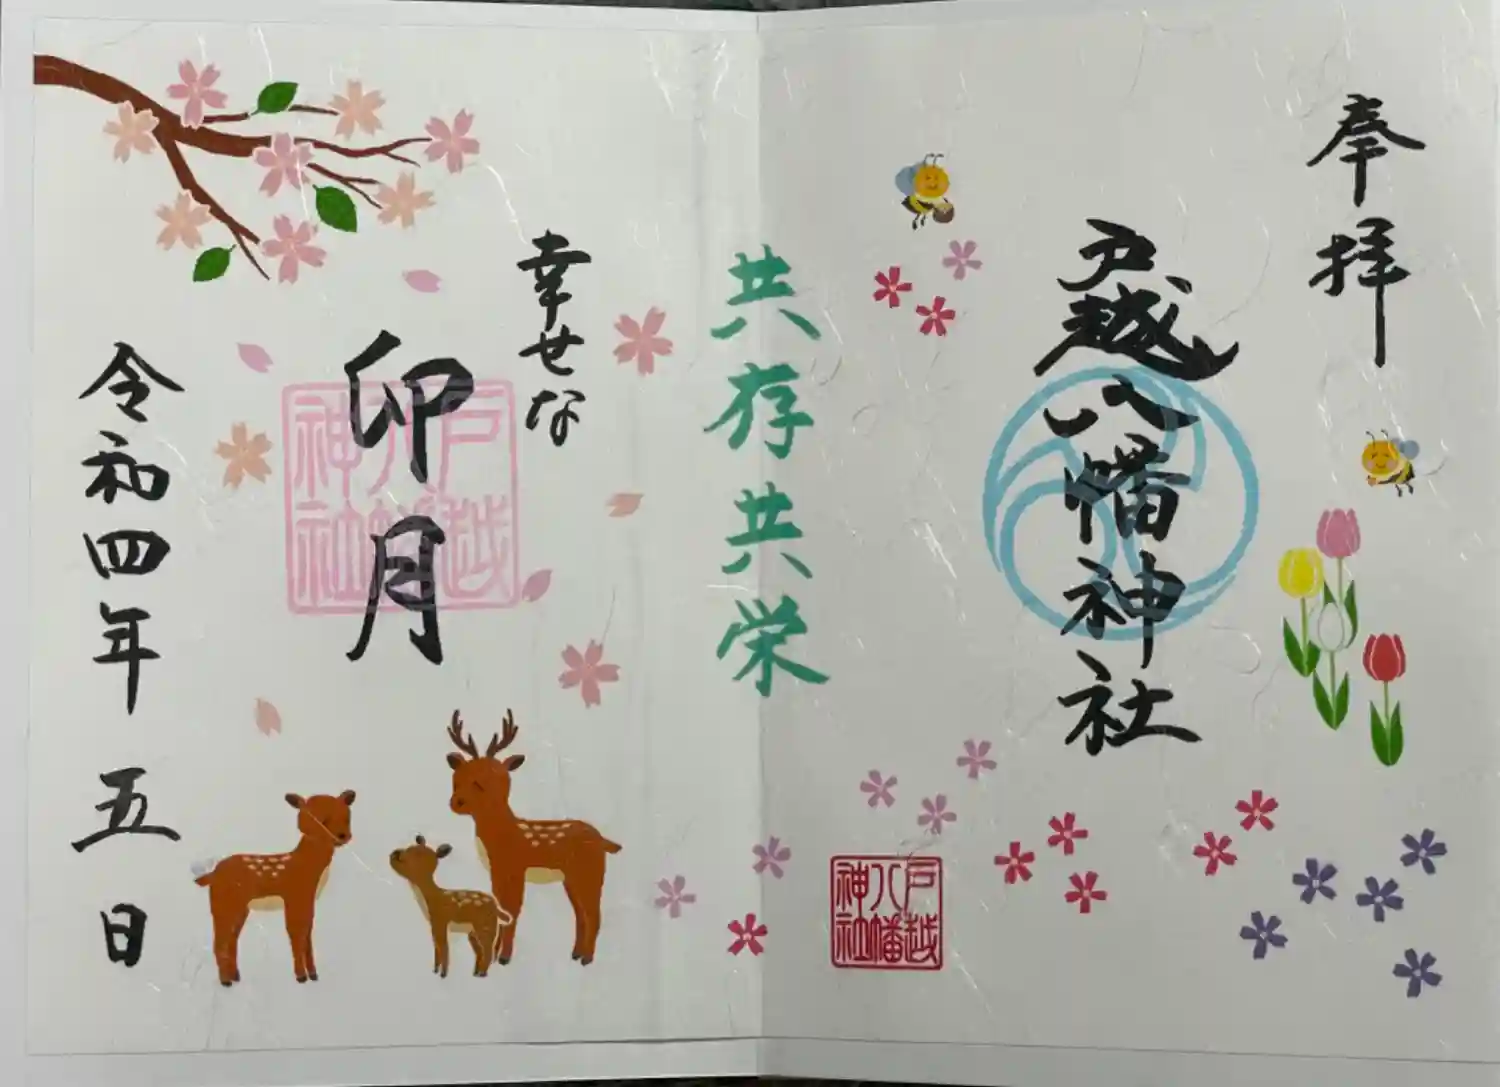 奉拝
戸越八幡神社
戸越八幡神社
共存共栄
幸せな
卯月
戸越八幡神社
令和四年 五日